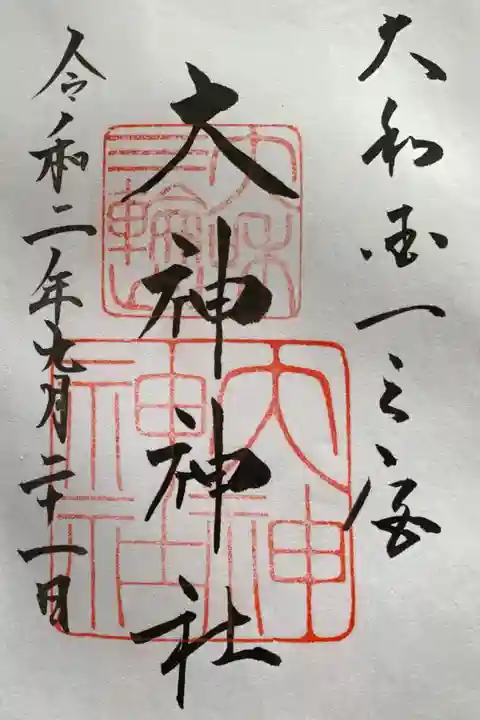 大和国一之宮
大神神社
令和二年七月二十一日
大和
三輪山
大神
神社